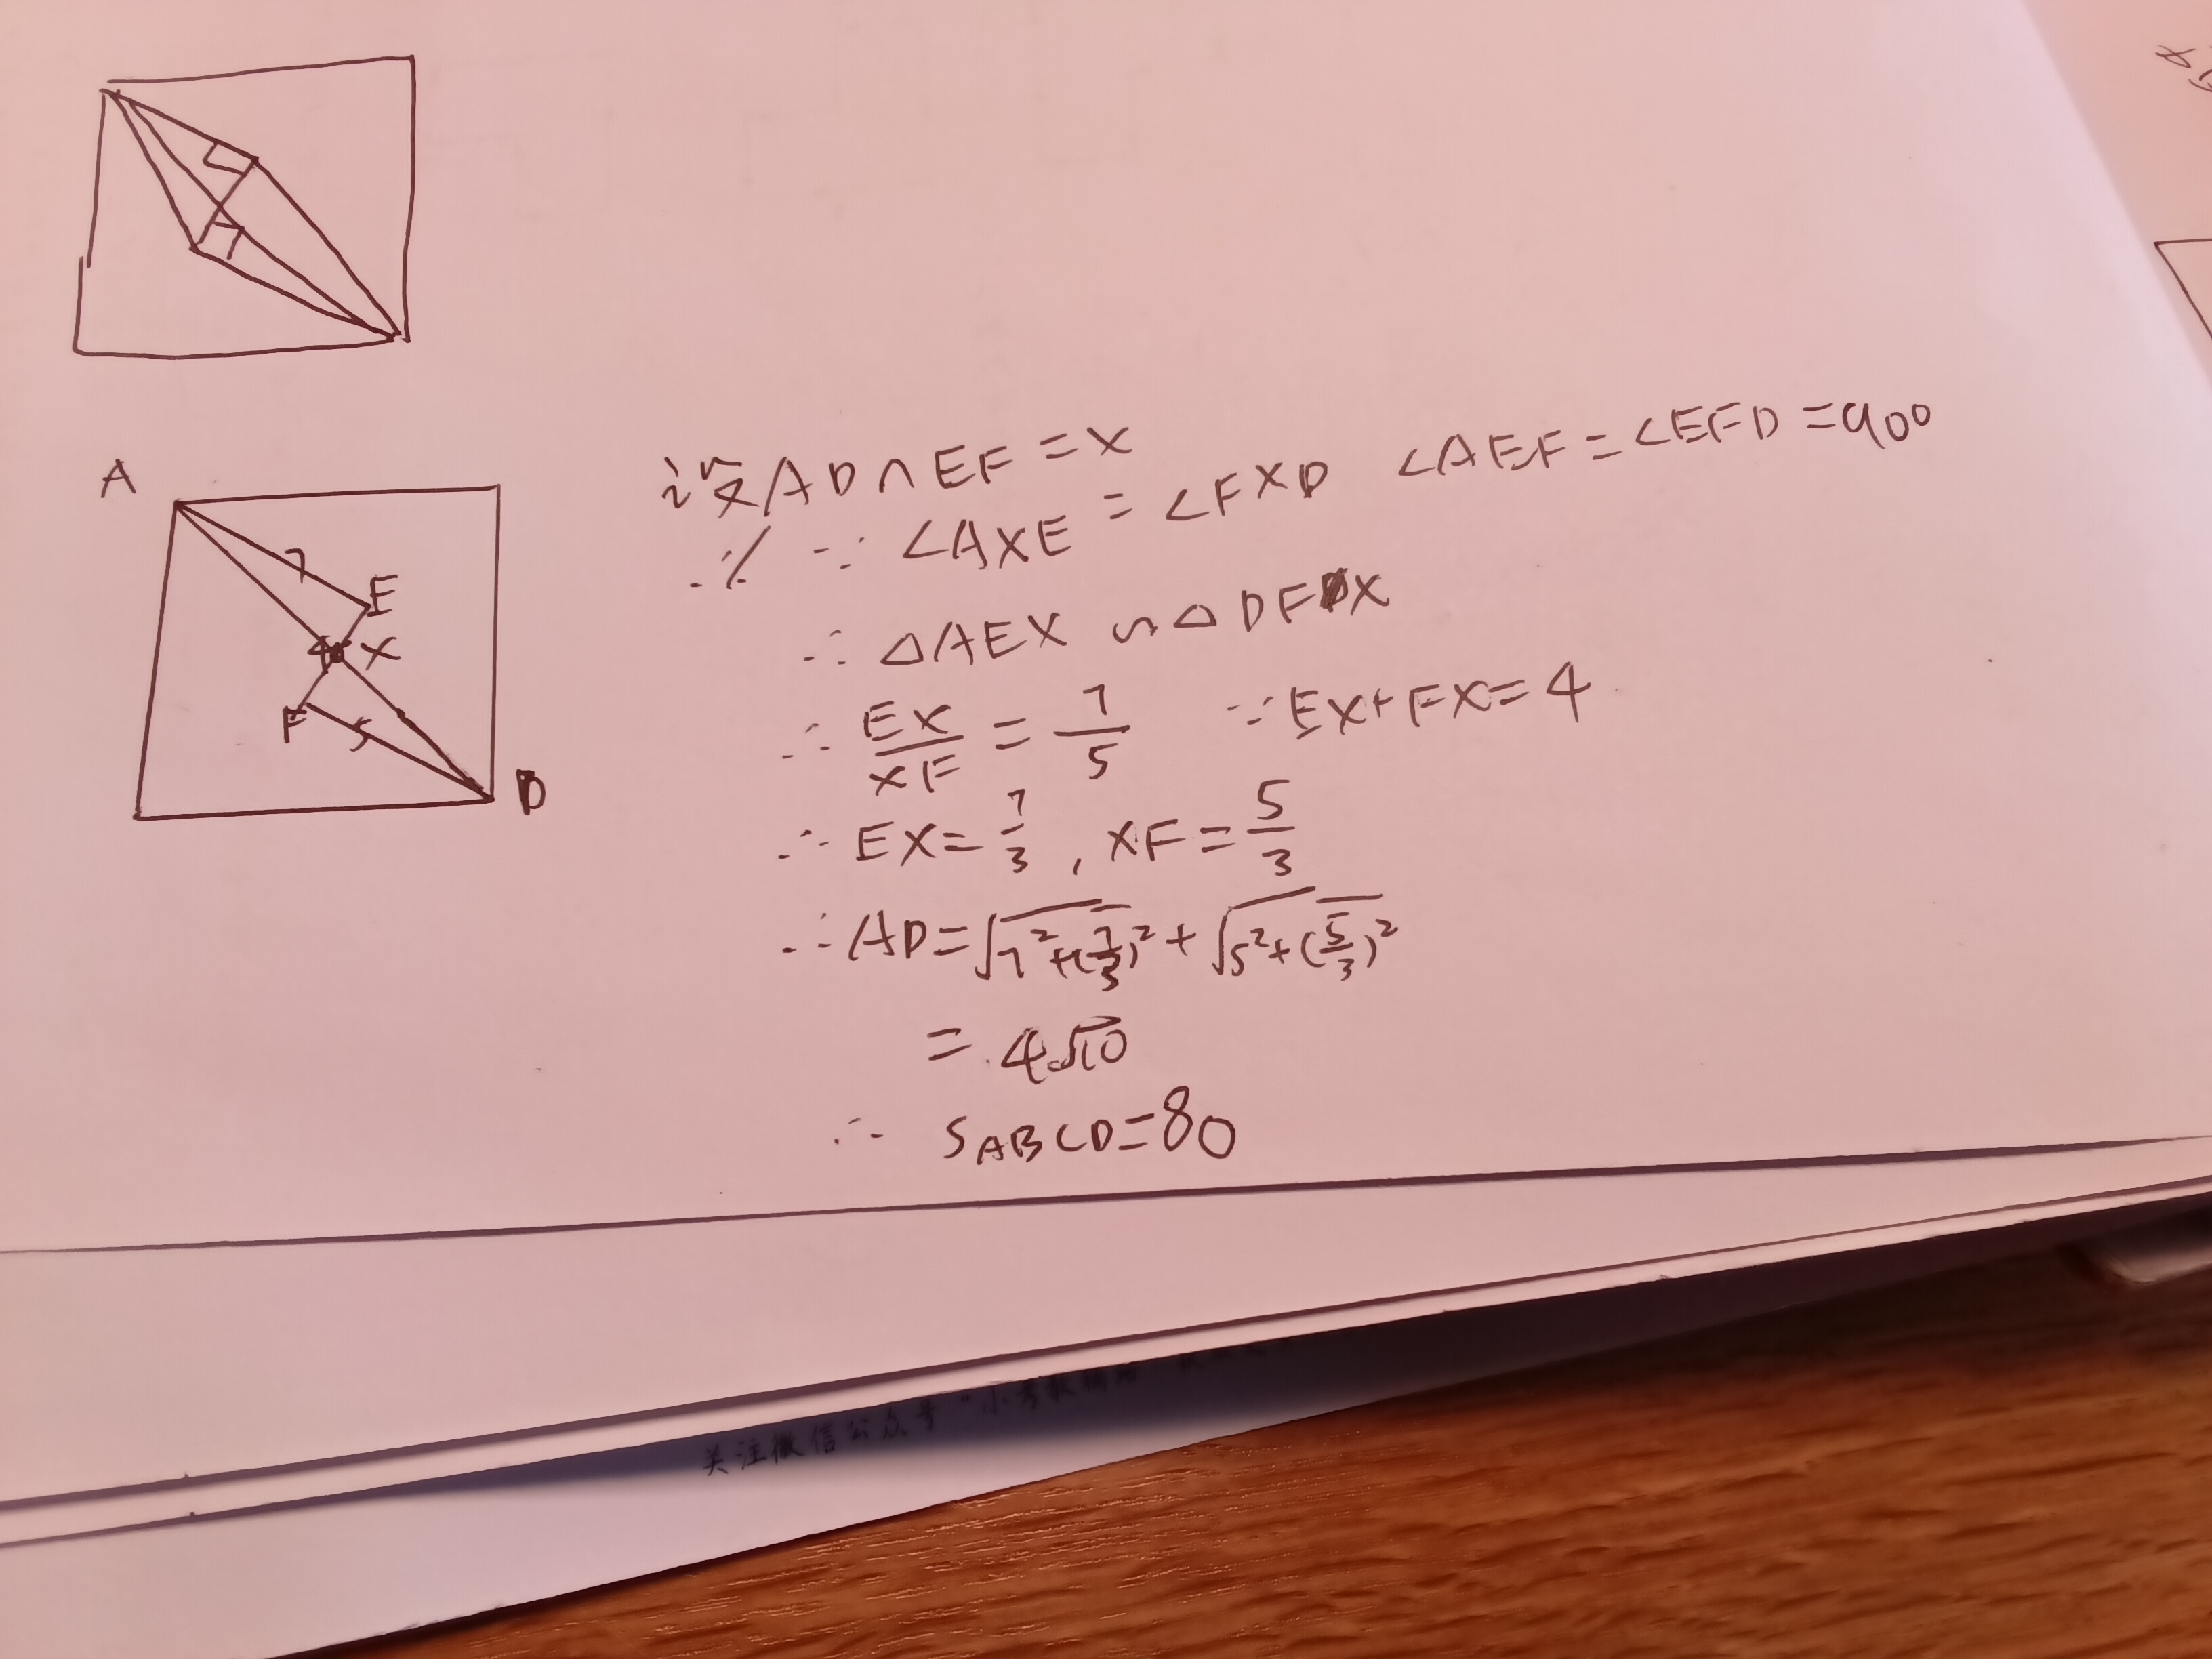 A
7
E
X
F
5
D
设AD∩EF=X ∠AEF=∠EFD=90°
∴ ∵ ∠AXE=∠FXD
∴ △AEX∽△DFX
∴ EX/XF=7/5 ∵EX+FX=4
∴ EX=7/3, XF=5/3
∴ AD=√(7²+(7/3)²)+√(5²+(5/3)²)
=4√10
∴ SABCD=80
关注微信公众号